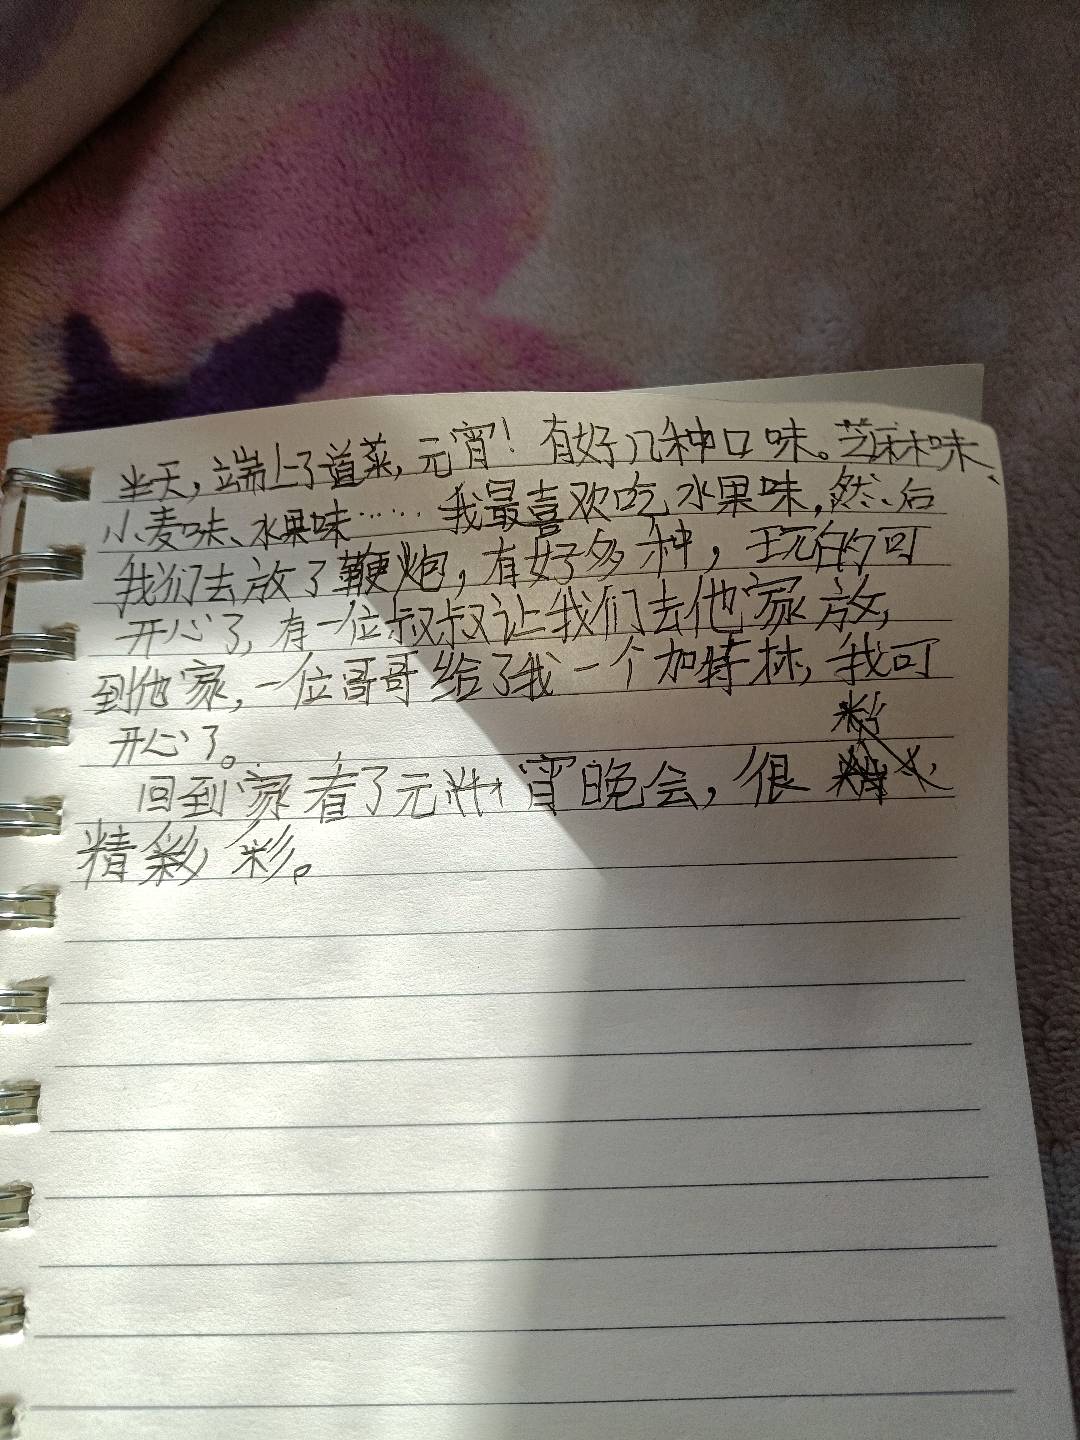 半天，端上了道菜，元宵！有好几种口味。芝麻味、
小麦味、水果味……我最喜欢吃水果味，然后
我们去放了鞭炮，有好多种，玩的可
开心了，有一位叔叔让我们去他家放，
到他家，一位哥哥给了我一个加特林，我可
开心了。
回到家看了元宵晚会，很
精彩彩。